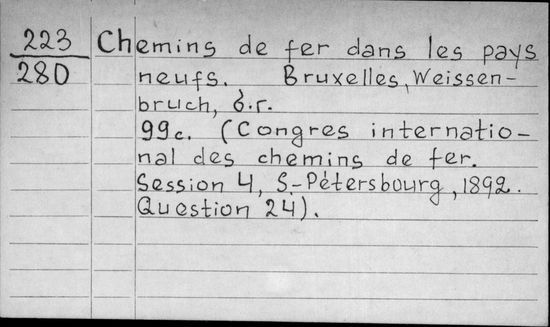 223 Chemins de fer dans les pays
280 neufs. Bruxelles, Weissen-
bruch, б.г.
99с. (Congres internatio-
nal des chemins de fer.
Session 4, S.-Pétersbourg, 1892.
Question 24).